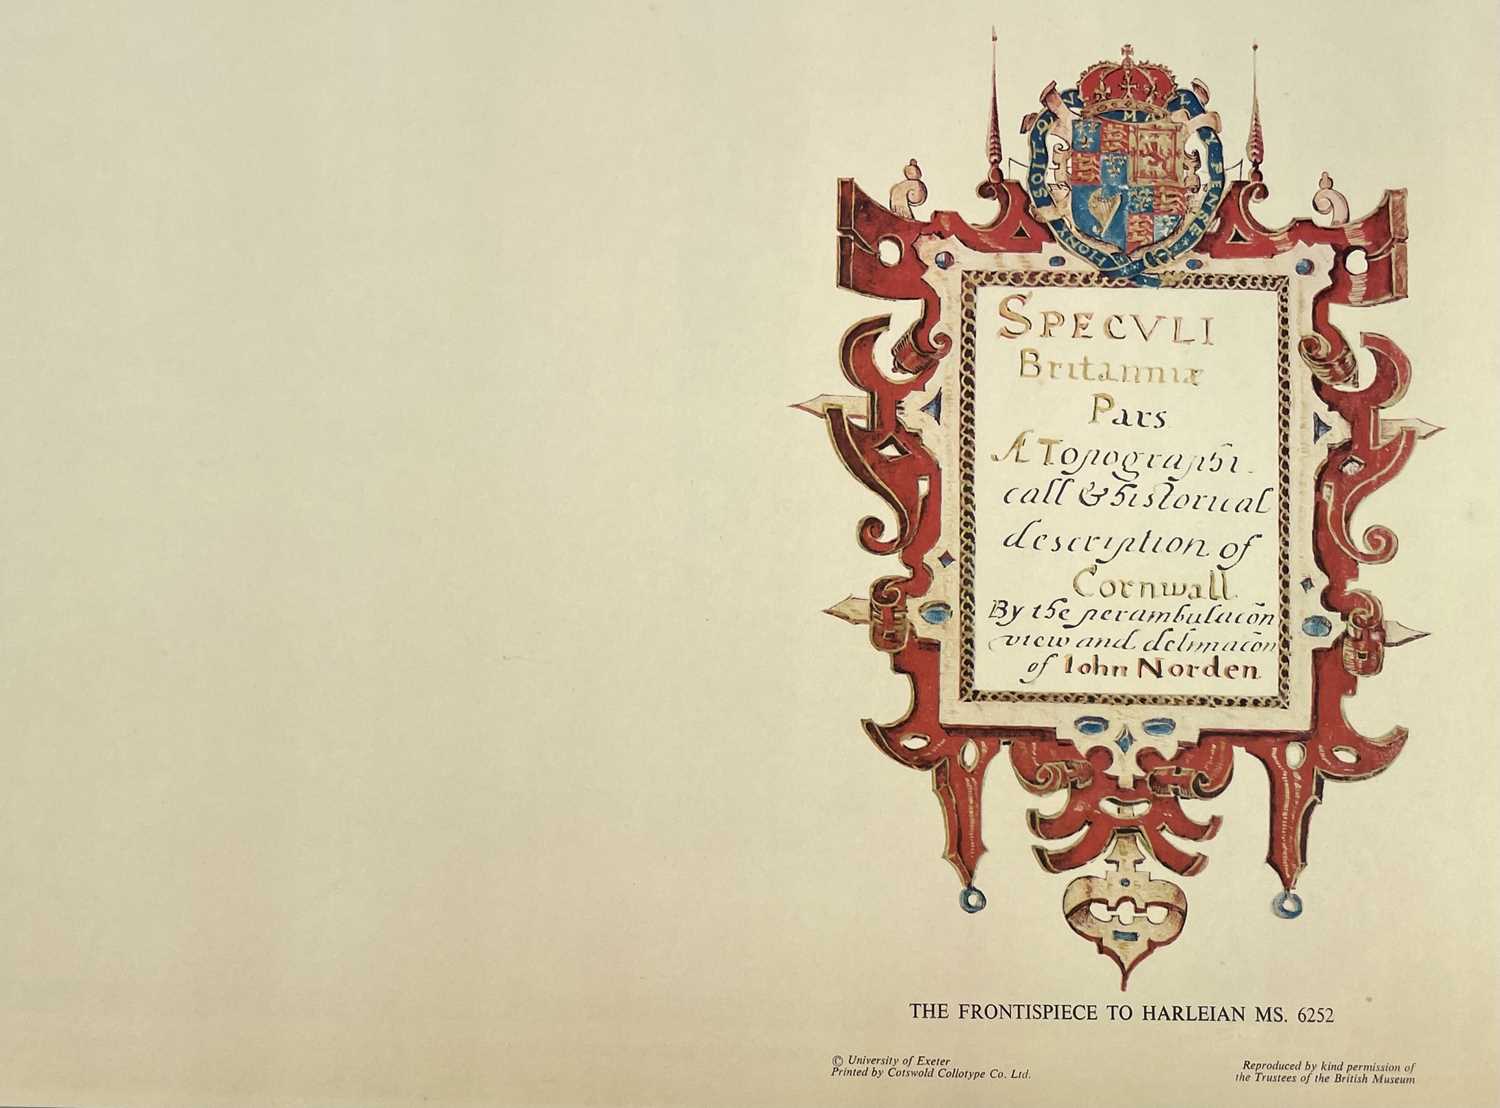 HONY SOIT QVI MAL Y PENSE
SPECVLI
Britanniæ
Pars
A Topographi-
call & historical
description of
Cornwall
By the perambulacõn
view and delinacõn
of Iohn Norden
THE FRONTISPIECE TO HARLEIAN MS. 6252
© University of Exeter
Printed by Cotswold Collotype Co. Ltd.
Reproduced by kind permission of
the Trustees of the British Museum